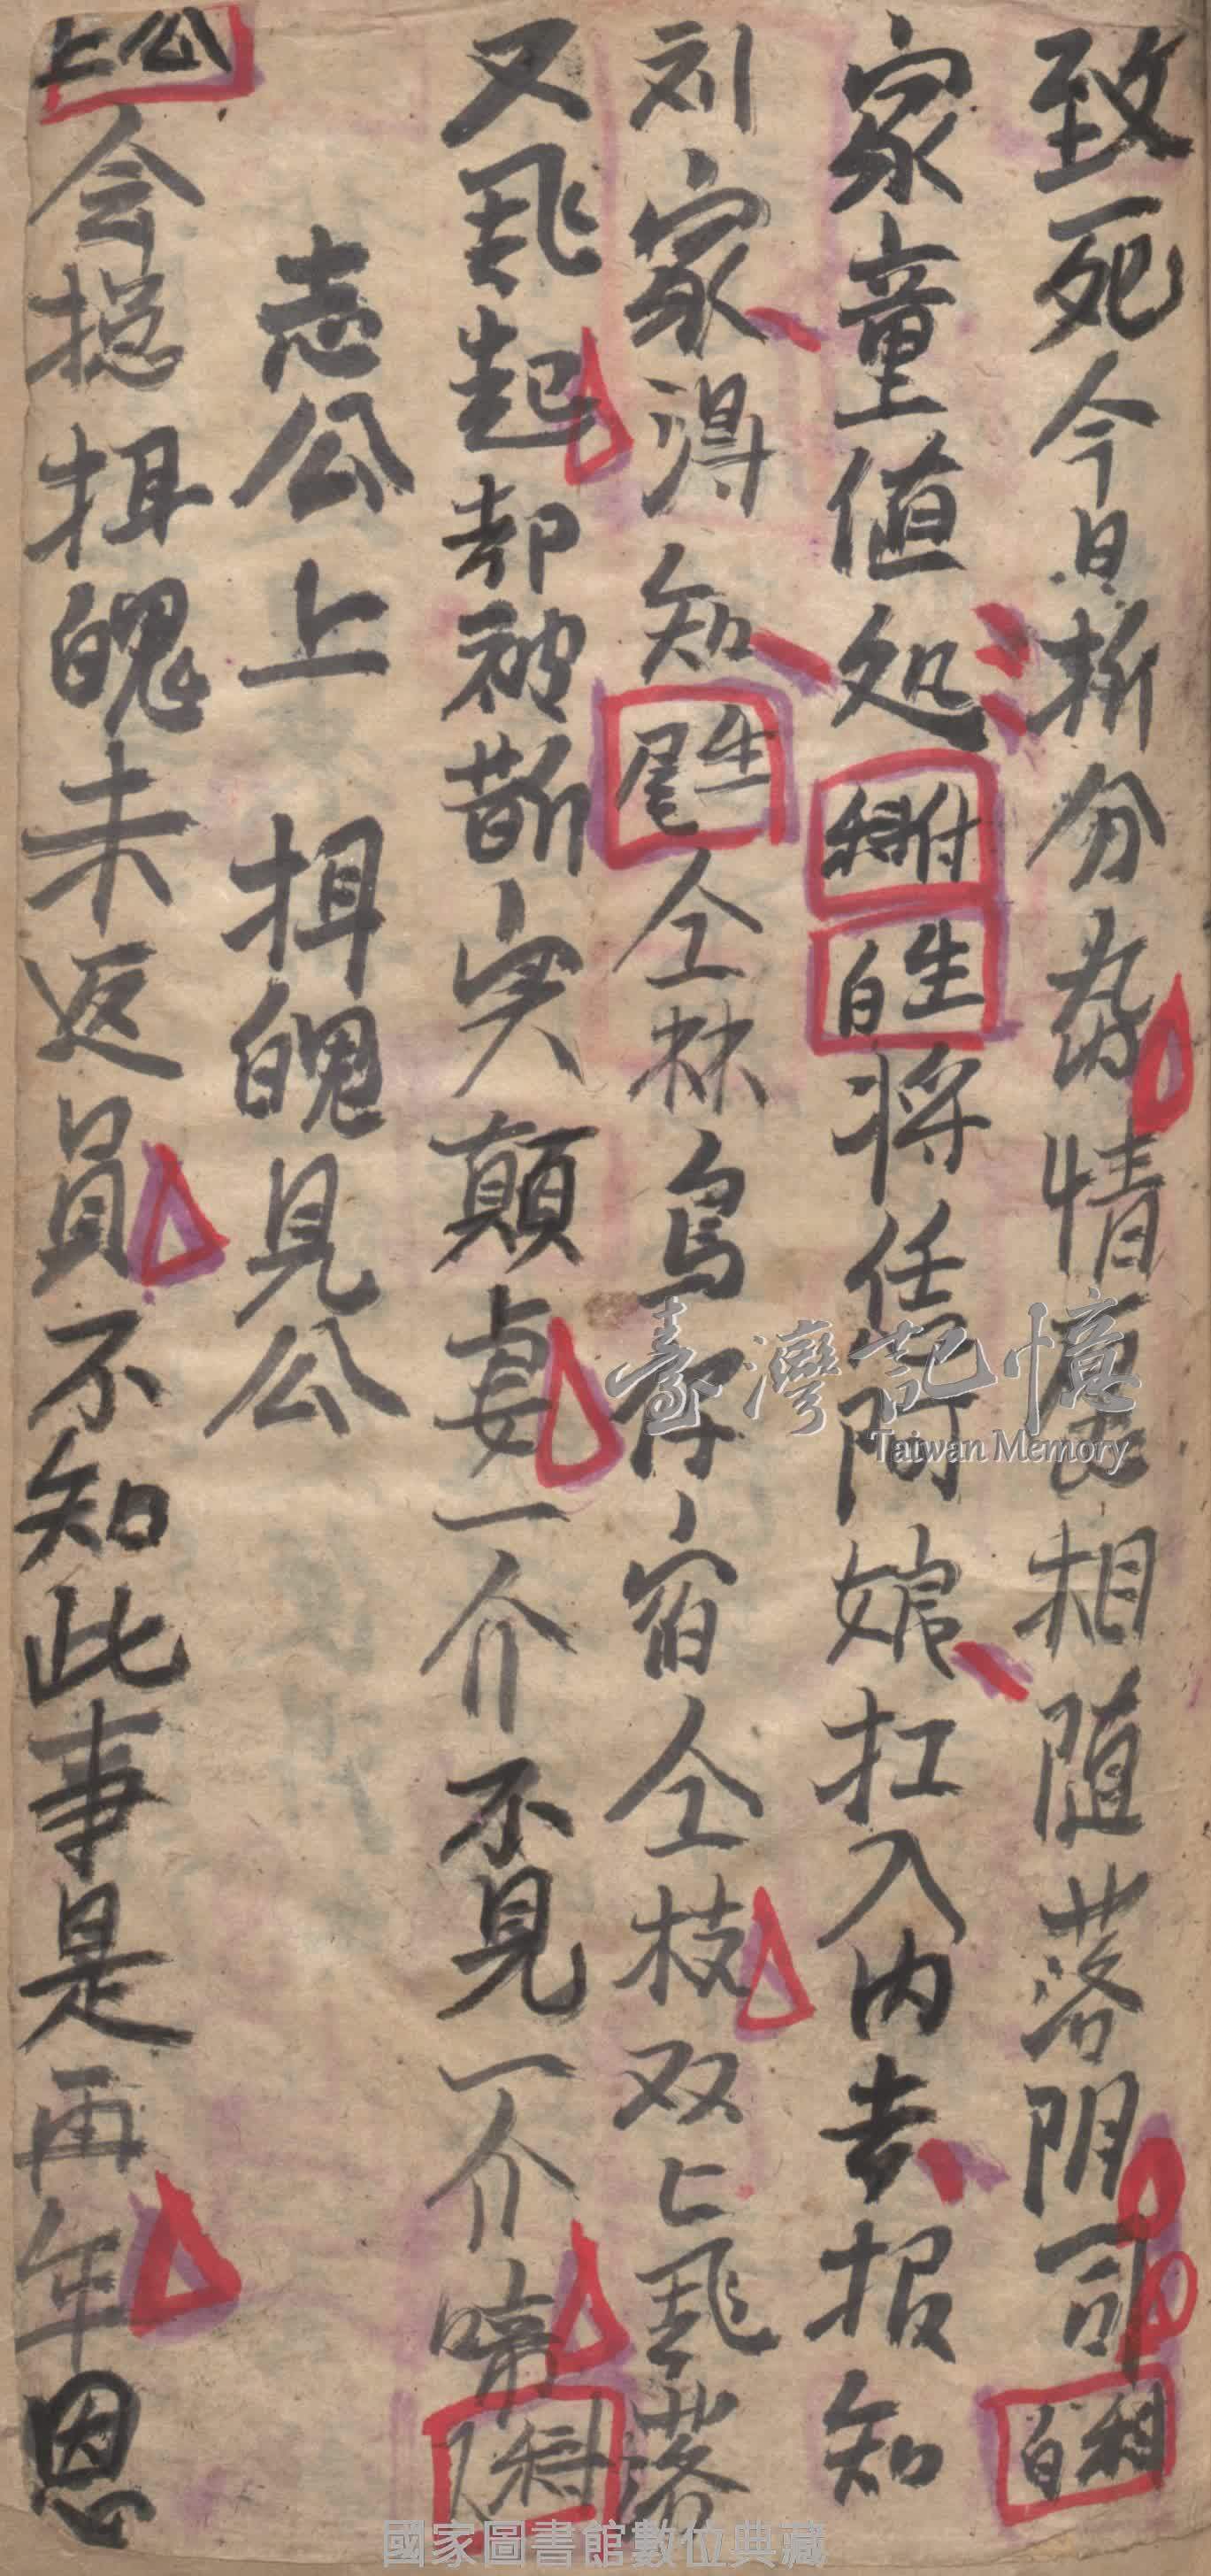 致死今日拆分势情愿相隨落阴司 科白
家童值処 科付 生白 将任阿娘扛入内去报知
刘家得知 生尾 仝林鳥仔宿仝枝双匕飛落
又飛起却被
実顛妾一介不見一介啼 科
志公上 魄見公
公上 会 魄未返員不知此事是再年恩
臺灣記憶
Taiwan Memory
國家圖書館數位典藏